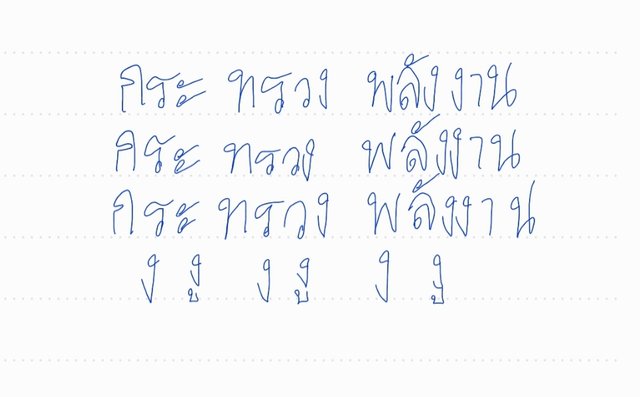 กระ ทรวง พลังงาน
กระ ทรวง พลังงาน
กระ ทรวง พลังงาน
ง งู ง งู ง งู